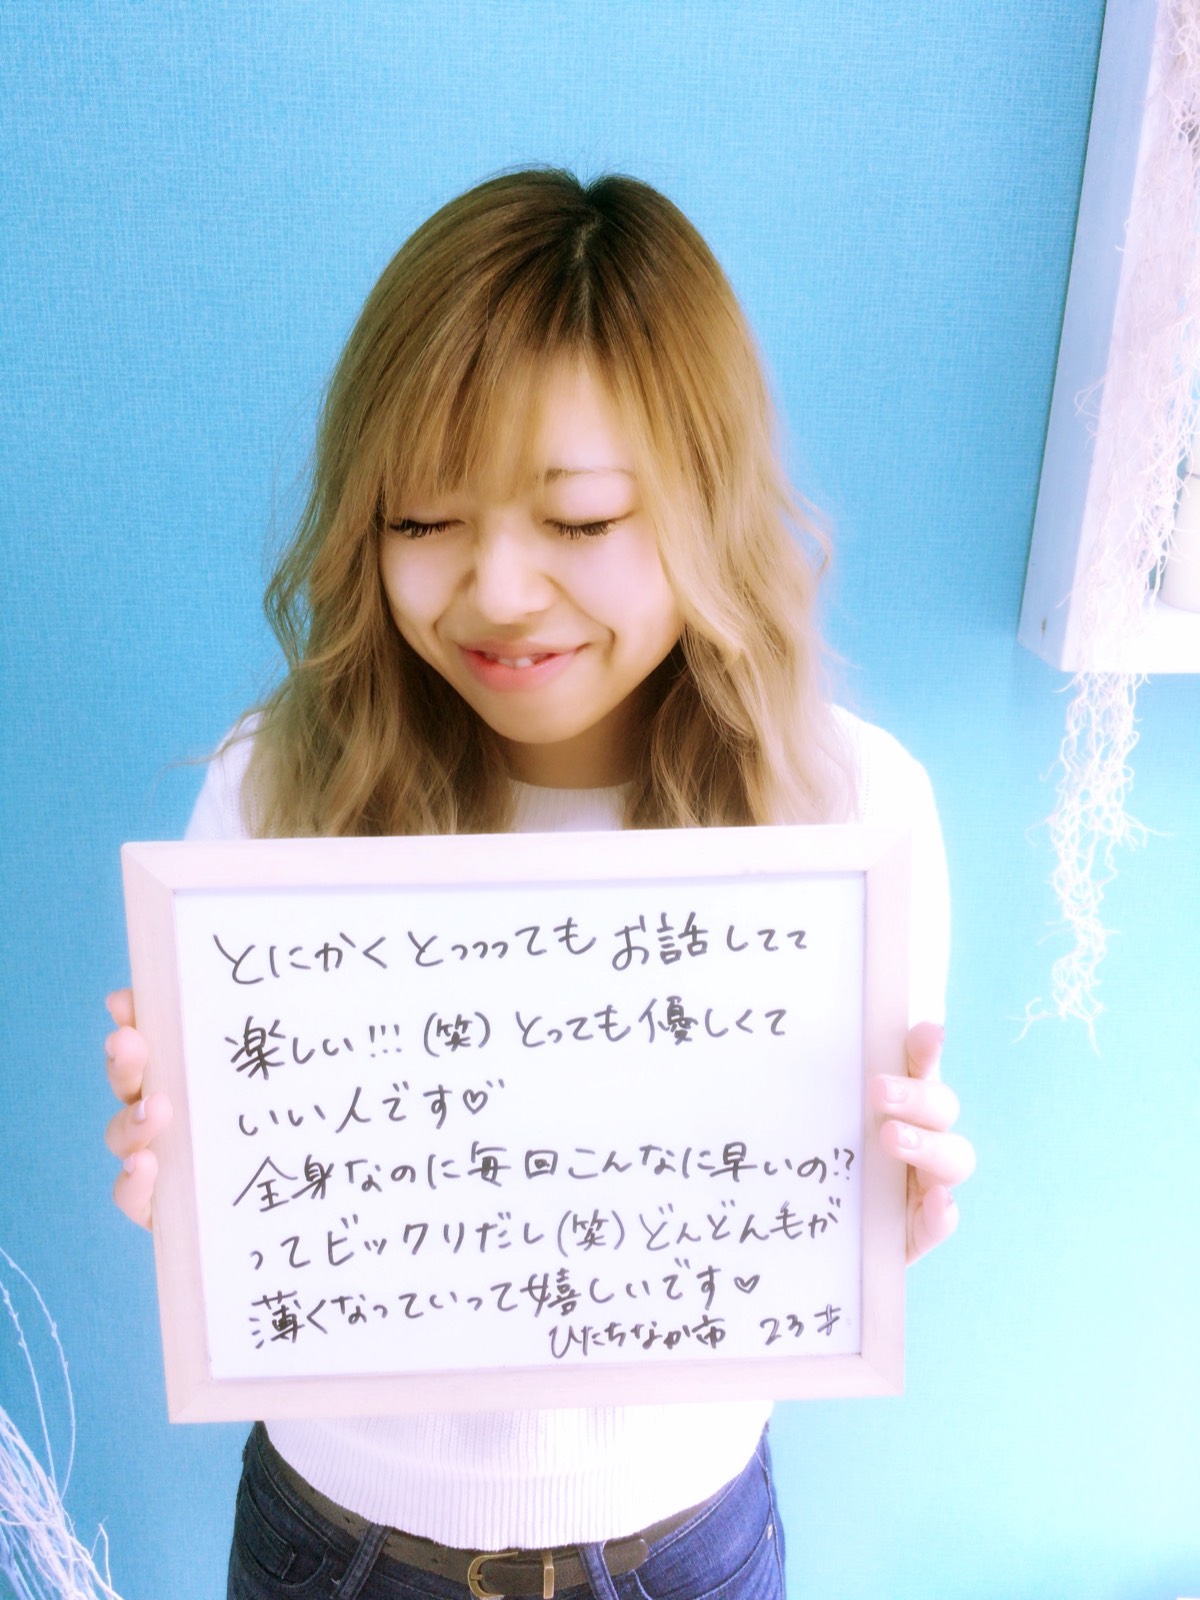 とにかくとっっっても お話してて
楽しい!!!(笑) とっても優しくて
いい人です♡
全身なのに毎回こんなに早いの!?
ってビックリだし(笑)どんどん毛が
薄くなっていって嬉しいです♡
ひたちなか市 23才